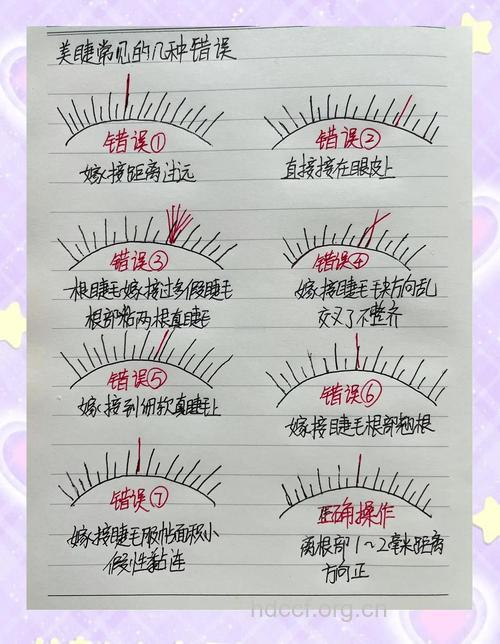 美睫常见的几种错误
错误①
嫁接距离过远
错误②
直接接在眼皮上
错误③
一根睫毛嫁接过多假睫毛
根部粘两根真睫毛
错误④
嫁接睫毛毛尖方向乱
交叉了不整齐
错误⑤
嫁接到细软真睫毛上
错误⑥
嫁接睫毛根部翘根
错误⑦
嫁接睫毛服帖面积小
假性黏连
正确操作
离根部1~2毫米距离
方向正
hdccf.org.cn